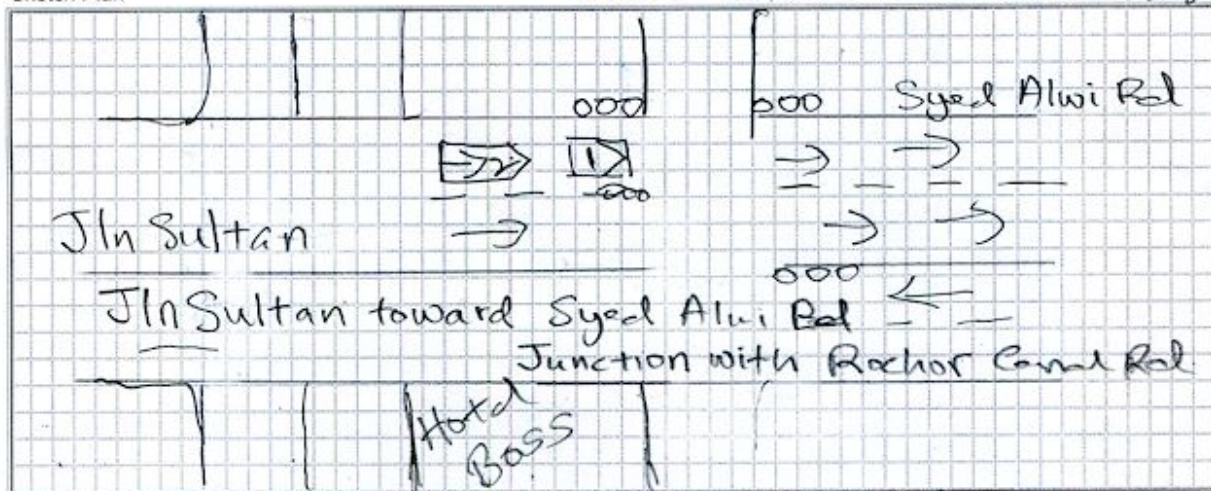 Syed Alwi Rd
2
1
Jln Sultan
Jln Sultan toward Syed Alwi Rd
Junction with Rochor Canal Rd
Hotel
Boss